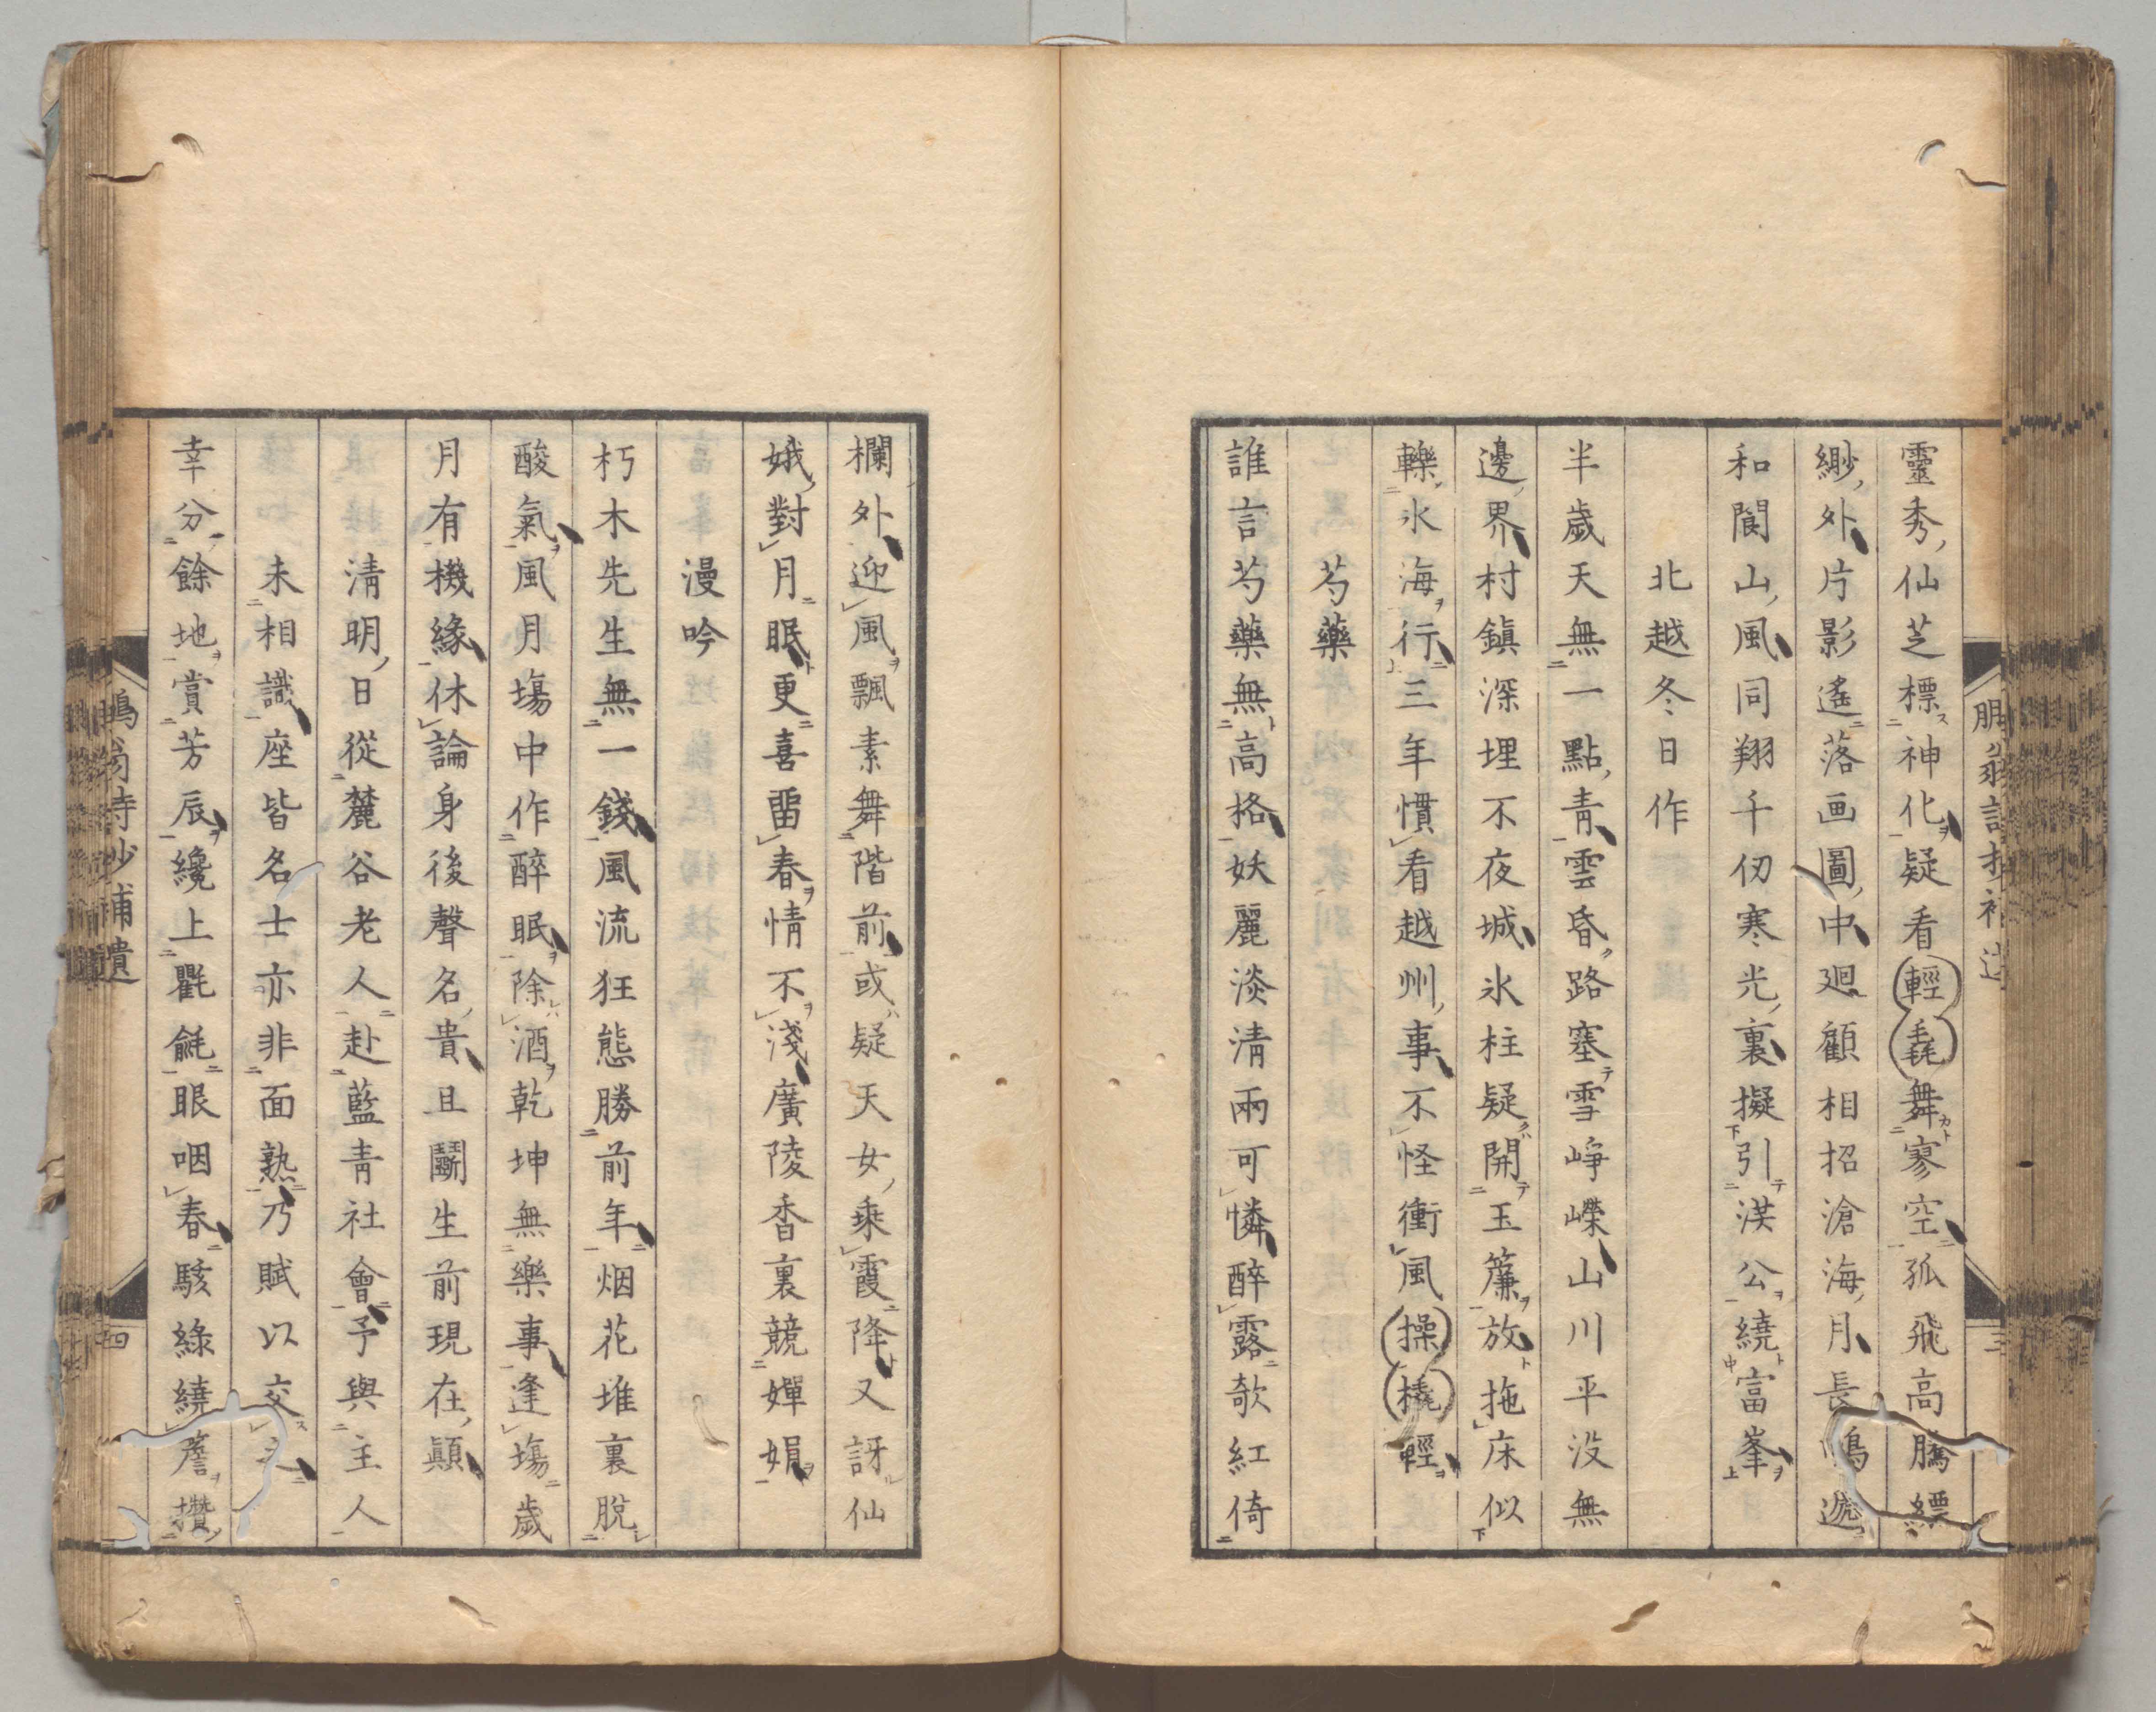 靈秀仙芝標神化疑看輕毳舞寥空孤飛高騰縹
緲外片影遙落画圖中廻顧相招滄海月長鳴遊
和閬山風同翔千仞寒光裏擬引渼公繞富峯
北越冬日作
半歲天無一點青雲昏路塞雪崢嶸山川平没無
邊界村鎮深埋不夜城氷柱疑開玉簾放拖床似
轢氷海行三年慣看越州事不怪衝風操橇輕
芍藥
誰言芍藥無高格妖麗淡清兩可憐醉露欹紅倚
欄外迎風飄素舞階前或疑天女乘霞降又訝仙
娥對月眠更喜畱春情不淺廣陵香裏競嬋娟
漫吟
朽木先生無一錢風流狂態勝前年烟花堆裏脫
酸氣風月塲中作醉眠除酒乾坤無樂事逢塲歲
月有機緣休論身後聲名貴且鬬生前現在顚
清明日從麓谷老人赴藍青社會予與主人
未相識座皆名士亦非面熟乃賦以交之
幸分餘地賞芳辰纔上氍毹眼咽春駭綠繞簷攢
鵬翁詩抄補遺
三
鵬翁詩抄補遺
四